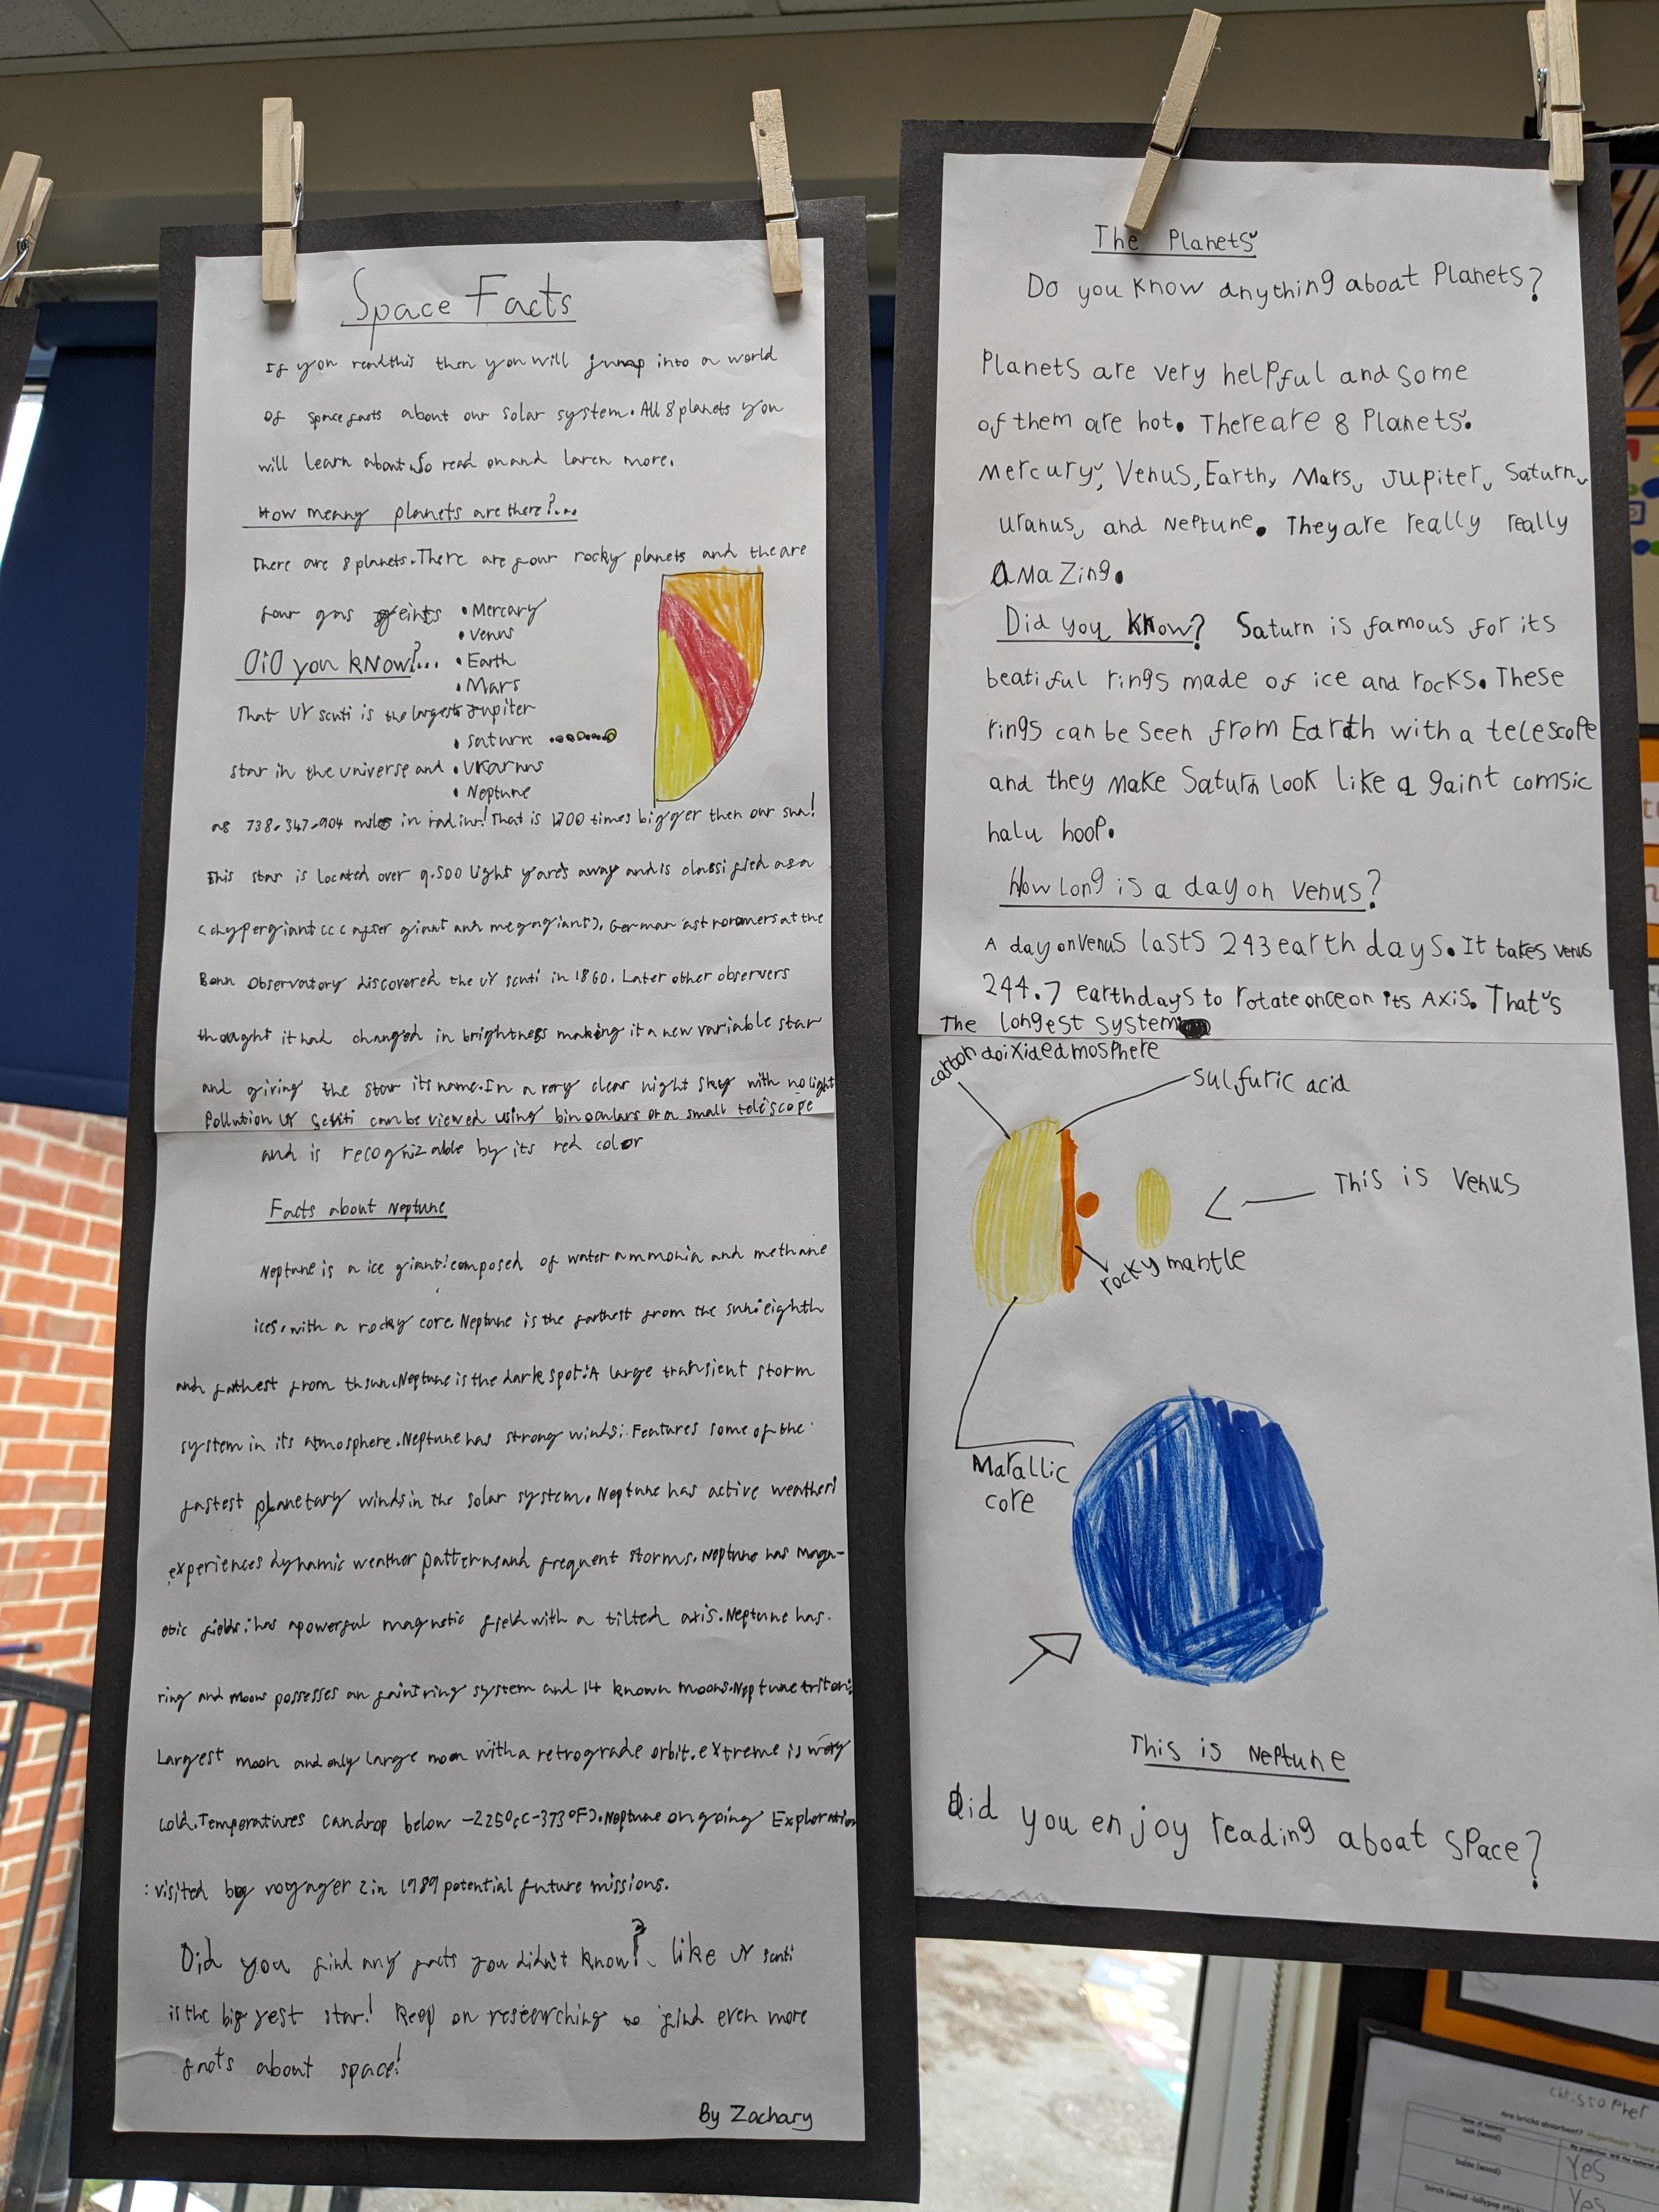 Space Facts
If you read this then you will jump into a world
of space facts about our solar system. All 8 planets you
will learn about. So read on and laren more.
How meany planets are there?...
There are 8 planets. There are four rocky planets and the are
four gas geints
• Mercary
• Venus
Did you know?...
• Earth
• Mars
That UY scuti is the largest
• Jupiter
• Saturn
star in the universe and
• Neptune
as 738.347.904 miles in radius! That is 1700 times bigger then our sun!
This star is located over 9.500 light yares away and is classified as a
(hypergiant (after giant and megagiants). German astronomers at the
Bonn Observatory discovered the UY scuti in 1860. Later other observers
thought it had changed in brightness making it a new variable star
and giving the star its name. In a very clear night sky with no light
Pollution UY Scuti can be viewed using binoculars or a small telescope
and is recognizable by its red color
Facts about Neptune
Neptune is a ice giant: composed of water ammonia and methane
ices. with a rocky core. Neptune is the farthest from the sun: eighth
and fathest from th sun. Neptune is the dark spot: A large transient storm
system in its atmosphere. Neptune has strong winds: Features some of the
fastest planetary winds in the solar system. Neptune has active weather:
experiences dynamic weather patterns and frequent storms. Neptune has magn-
etic fields: has a powerful magnetic field with a tilted axis. Neptune has
ring and moons possesses an faint ring system and 14 known moons. Neptune triton:
Largest moon and only large moon with a retrograde orbit. extreme is very
cold. Temperatures can drop below -225°c(-373°F). Neptune on going Exploration
: visited by voyager 2 in 1989 potential future missions.
Did you find any facts you didn't know? like UY scuti
is the biggest star! Keep on researching to find even more
facts about space!
By Zachary
The Planets
Do you know anything aboat Planets?
Planets are very helpful and some
of them are hot. There are 8 Planets.
Mercury, Venus, Earth, Mars, Jupiter, Saturn,
uranus, and Neptune. They are really really
amazing.
Did you know? Saturn is famous for its
beatiful rings made of ice and rocks. These
rings can be seen from Earth with a telescope
and they make Saturn look like a gaint comsic
halu hoop.
How Long is a day on Venus?
A day on Venus lasts 243 earth days. It takes Venus
244.7 earth days to rotate once on its Axis. That's
The longest system
carbon doixided mosphere
sulfuric acid
This is Venus
rocky mantle
Matallic
core
This is Neptune
Did you enjoy reading aboat space?
Christopher
Are bricks absorbent?
oak (wood)
balsa (wood)
Yes
birch (wood -lollypop stick)
Yes